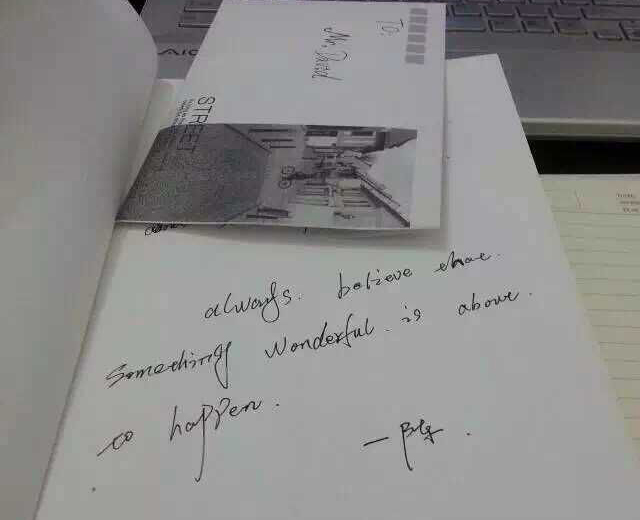 TO:
Mr. David
STREET
always. believe that.
Something Wonderful. is about.
to happen.